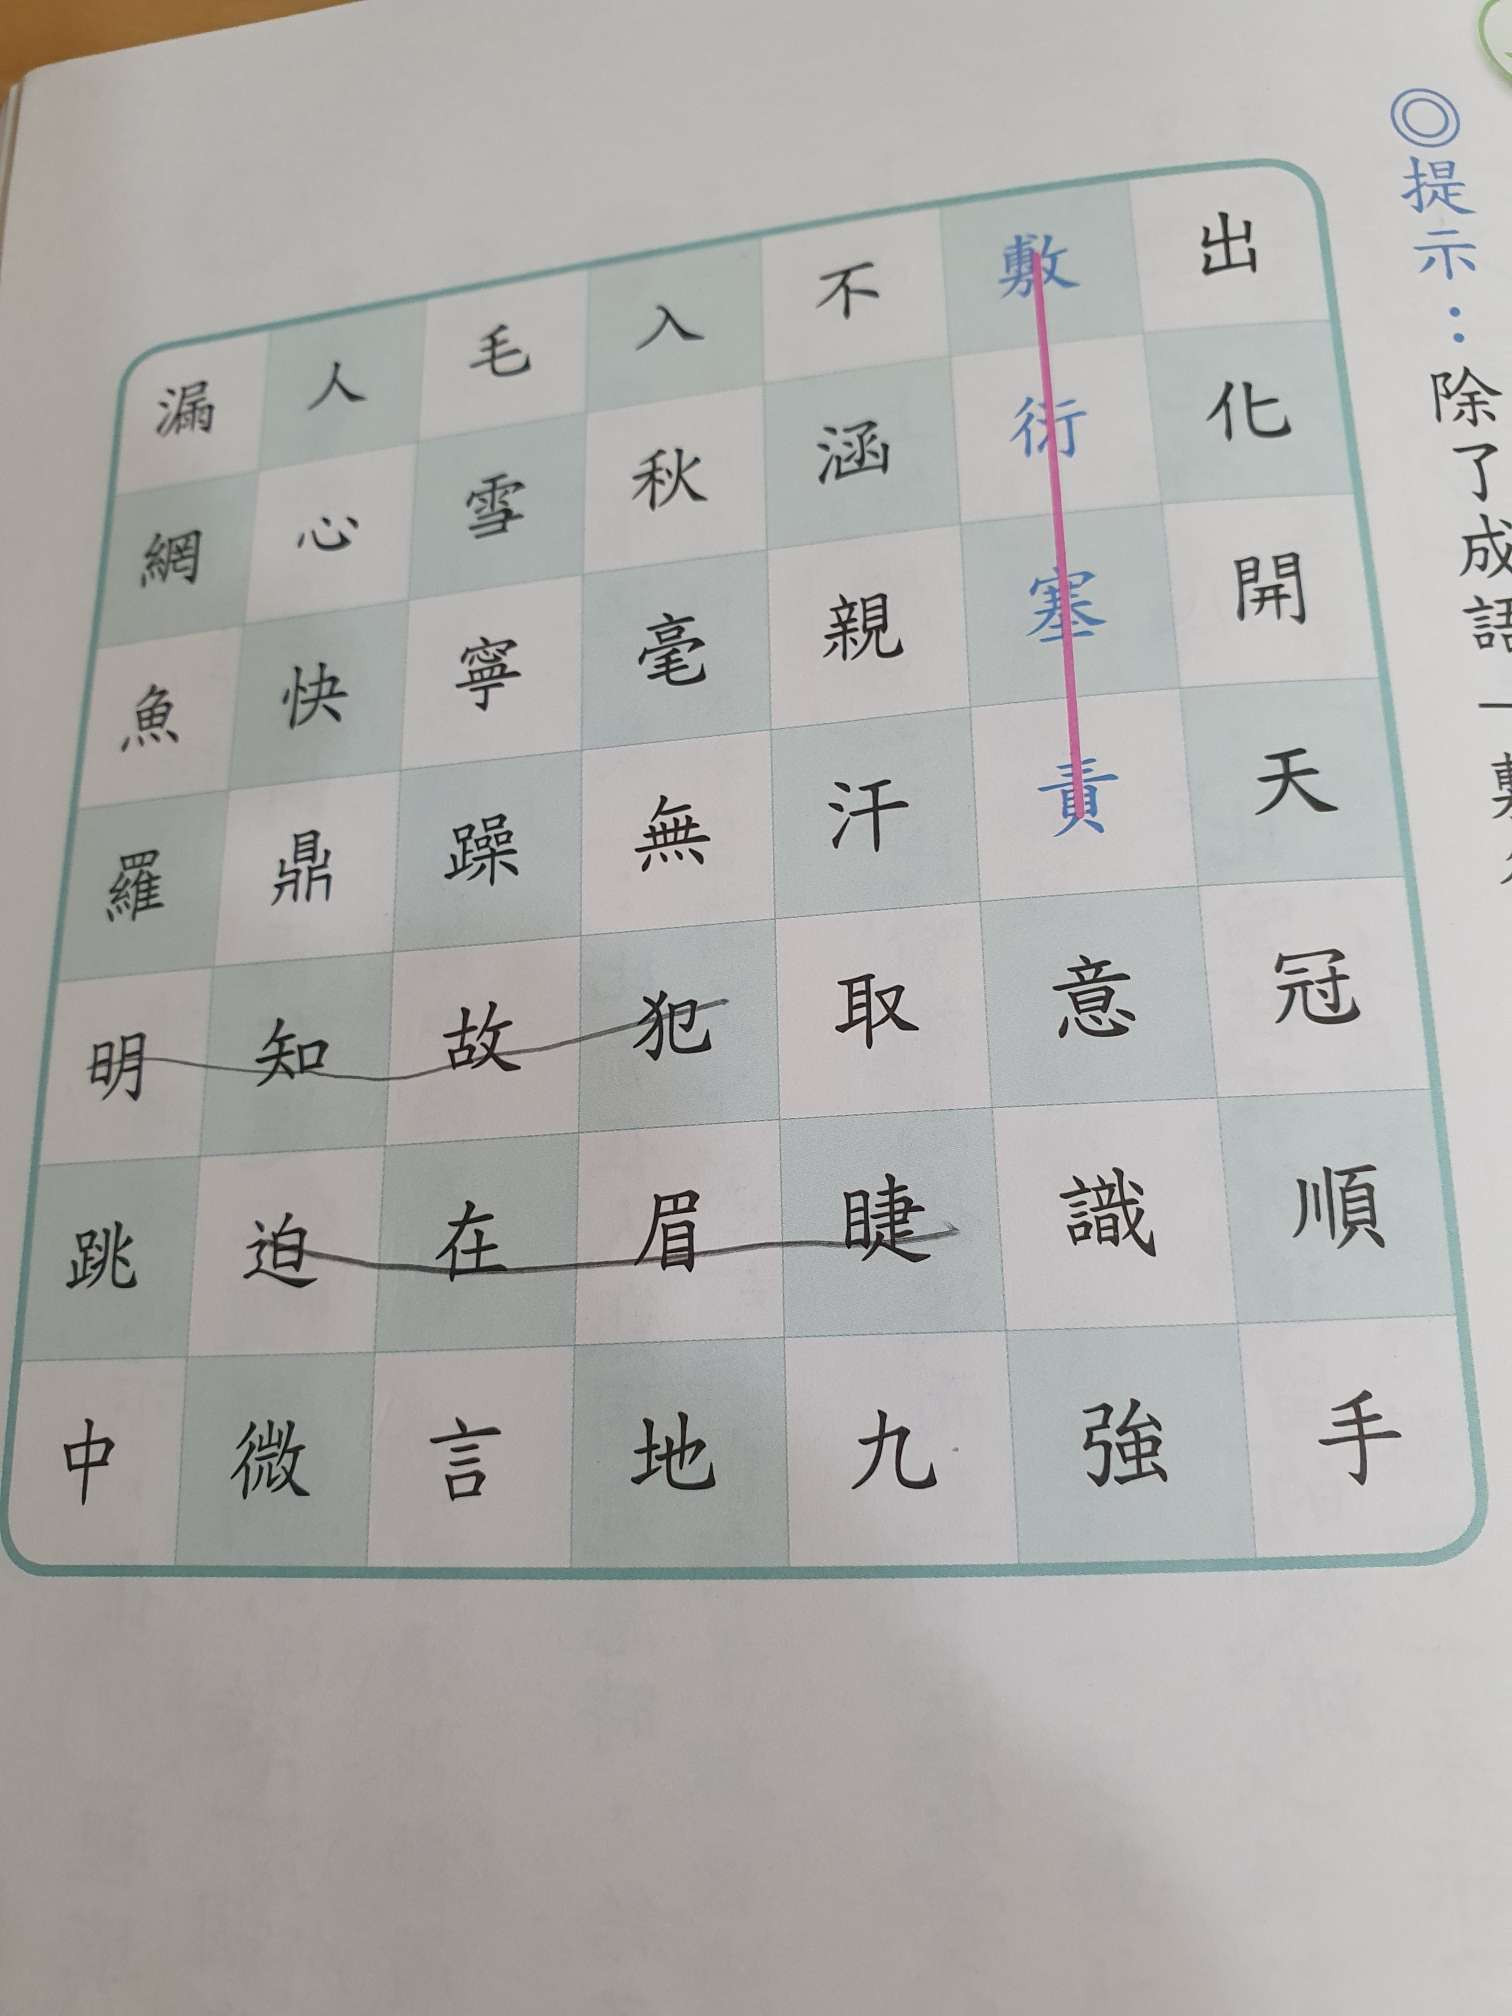 ◎提示：除了成語
漏人毛入不敷出
網心雪秋涵衍化
魚快寧毫親塞開
羅鼎躁無汗責天
明知故犯取意冠
跳迫在眉睫識順
中微言地九強手